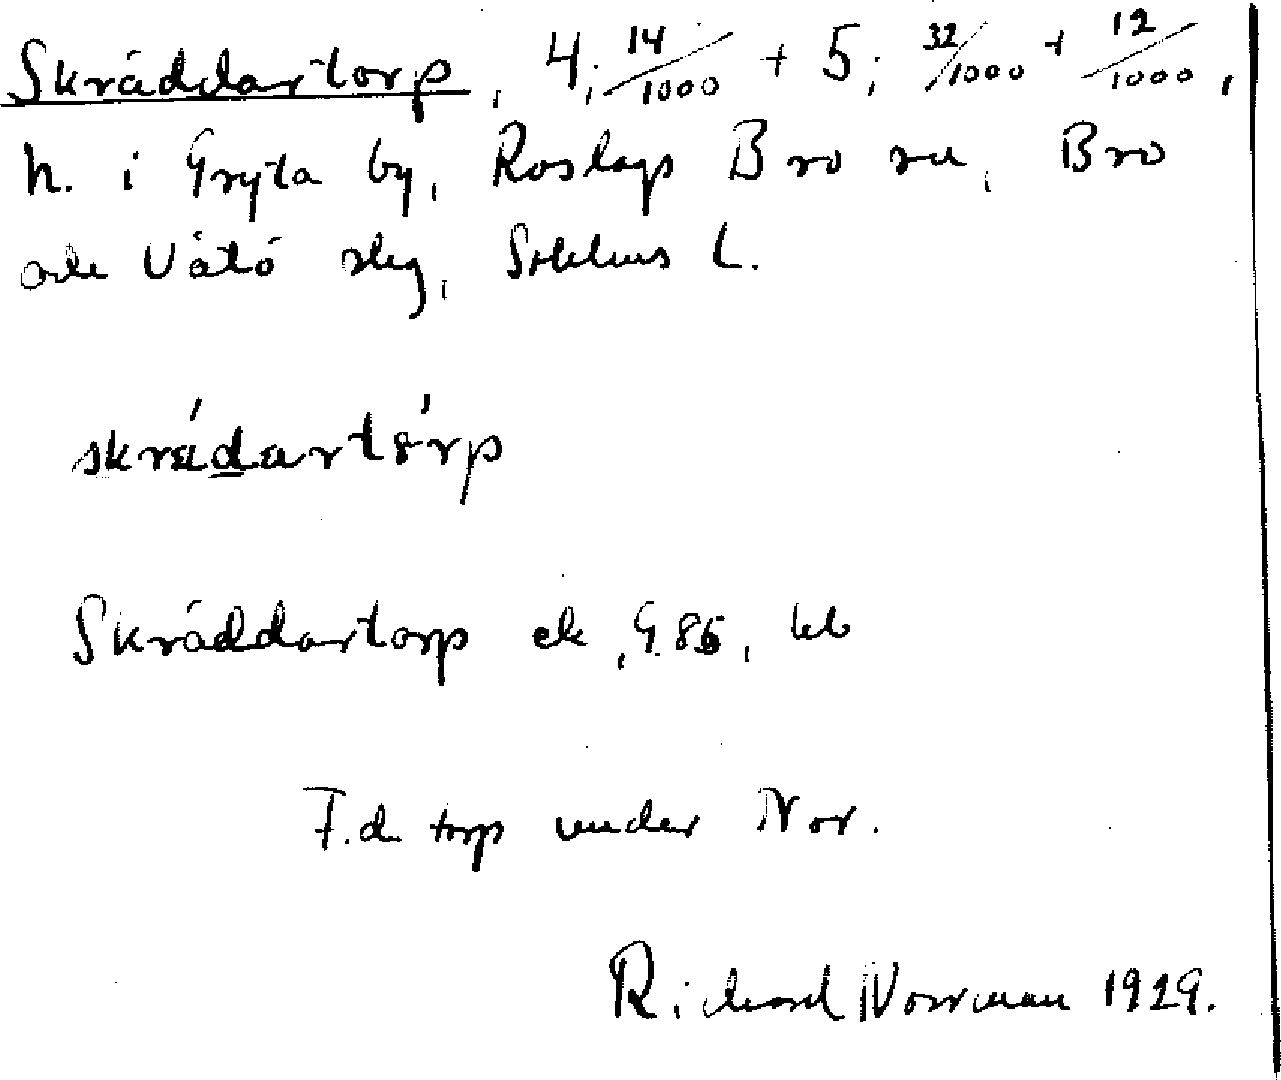 Skräddartorp, 4; 14/1000 + 5; 32/1000 + 12/1000,
h. i Gryta by, Roslags Bro sn, Bro
och Vätö slg, Sthlms l.
skrädartorp
Skräddartorp ek, G.85, kb
F.d. torp under Nor.
Richard Norrman 1929.